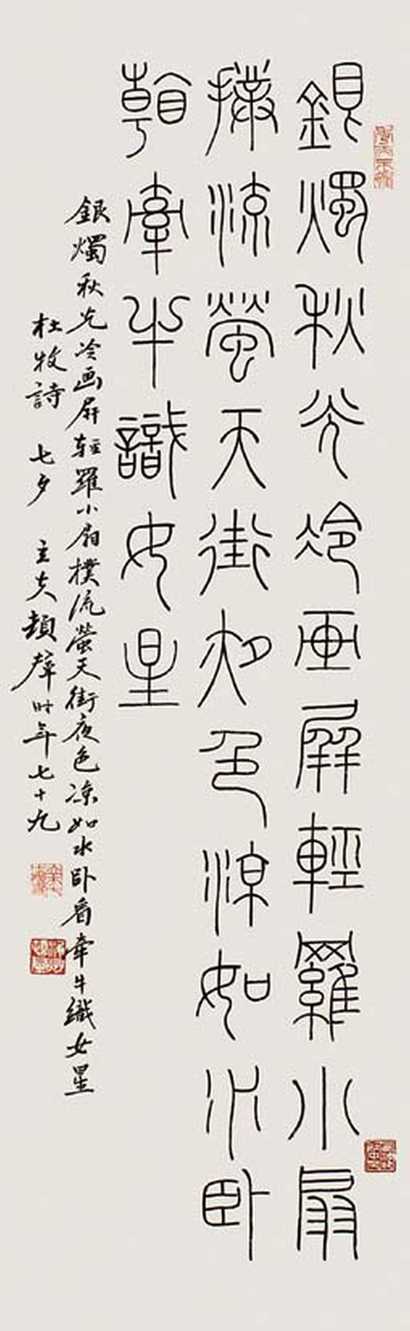 銀燭秋光冷画屏輕羅小扇
撲流螢天街夜色涼如水臥
看牽牛識女星
銀燭秋光冷画屏輕羅小扇撲流螢天街夜色凉如水卧看牽牛織女星
杜牧詩 七夕 时年七十九